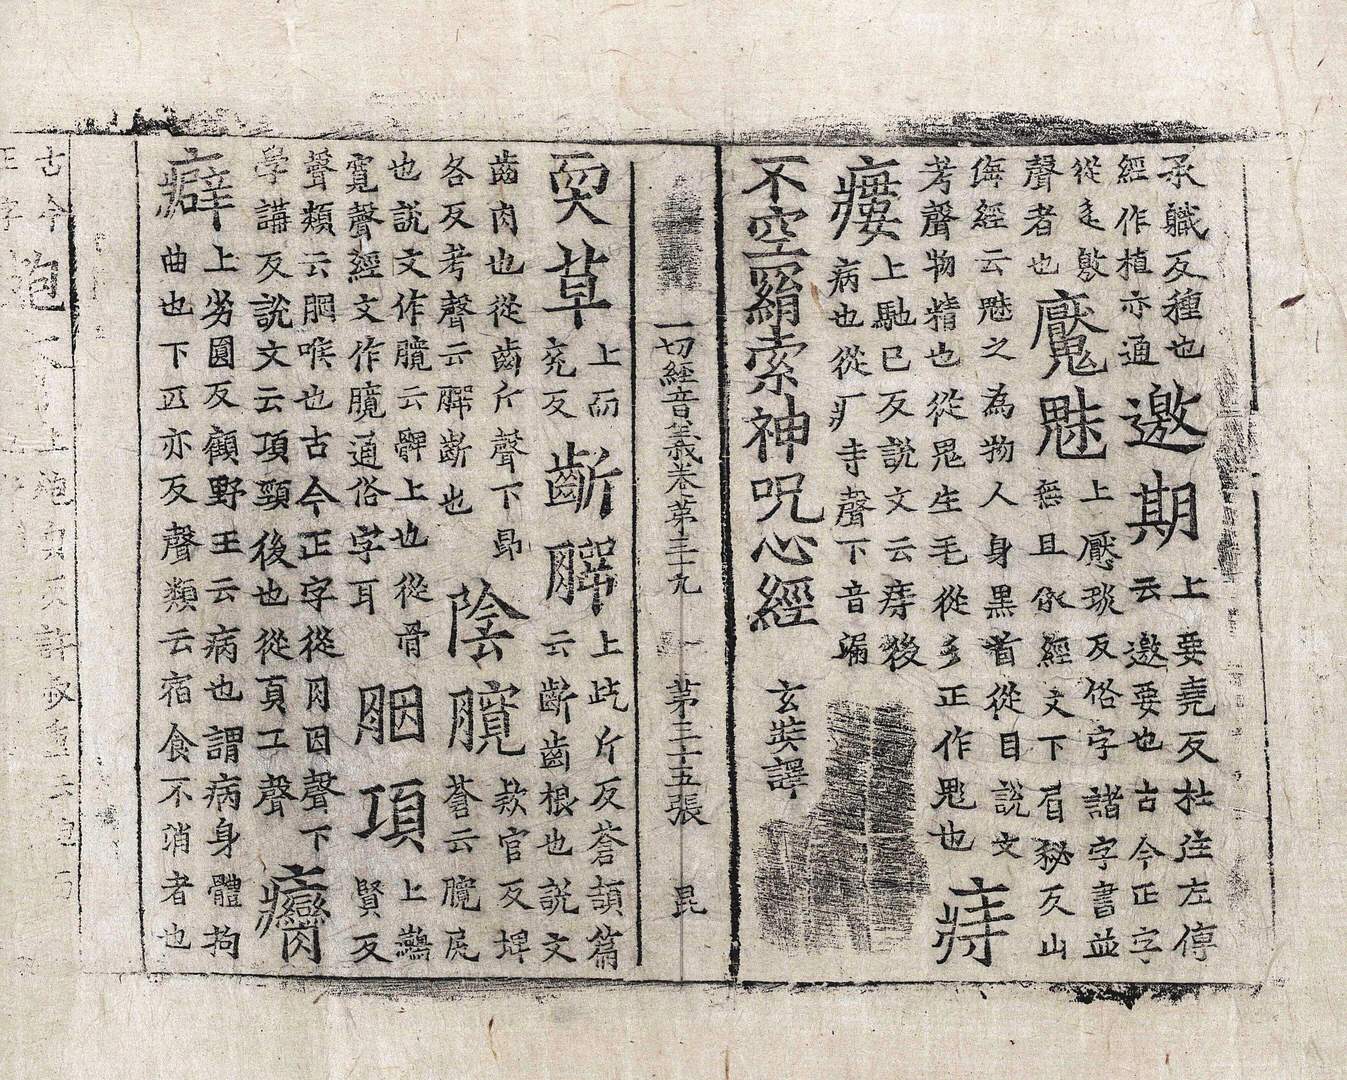 承職反種也
經作植亦通
邀期
上要堯反杜注左傳
云邀要也古今正字
從辵敫
聲者也
魘魅
上壓琰反俗字諸字書並
無且依經文下眉秘反山
海經云魅之為物人身黑首從目說文
考聲物精也從鬼生毛從彡正作鬽也
痔
瘻
上馳已反說文云痔後
病也從疒寺聲下音漏
不空羂索神呪心經 玄奘譯
一切經音義卷第三十九 第三十五張 昆
耎草
上而
兖反
齗腭
上斤反蒼頡篇
云齗齒根也說文
齒肉也從齒斤聲下昴
各反考聲云腭齗也
陰臗
款官反埤
蒼云臗尻
也說文作髖云髀上也從骨
寬聲經文作臗通俗字耳
胭項
上鷰
賢反
聲類云胭喉也古今正字從月因聲下
學講反說文云項頸後也從頁工聲
癵
癖
上劣圓反顧野王云病也謂病身體拘
曲也下匹亦反聲類云宿食不消者也
古今